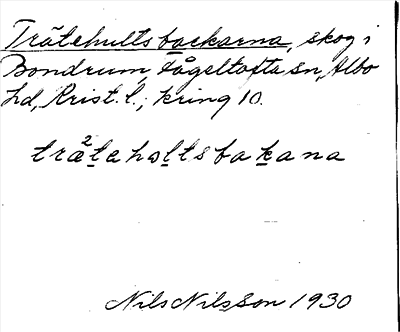 Trätehultsbackarna, skog i
Bondrum, Fågeltofta sn, Albo
hd, Krist. l.; kring 10.
trä²tehọltsbakana
Nils Nilsson 1930